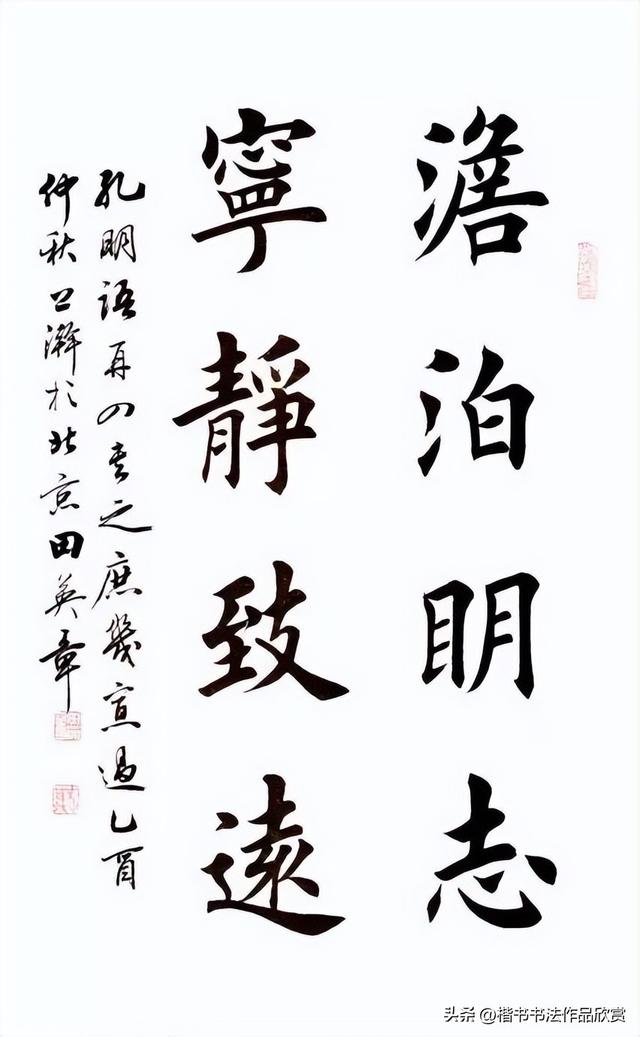 澹泊明志
寧静致遠
孔明語再四書之庶幾寡過乙酉
仲秋上澣於北京田英章
头条 @楷书书法作品欣赏